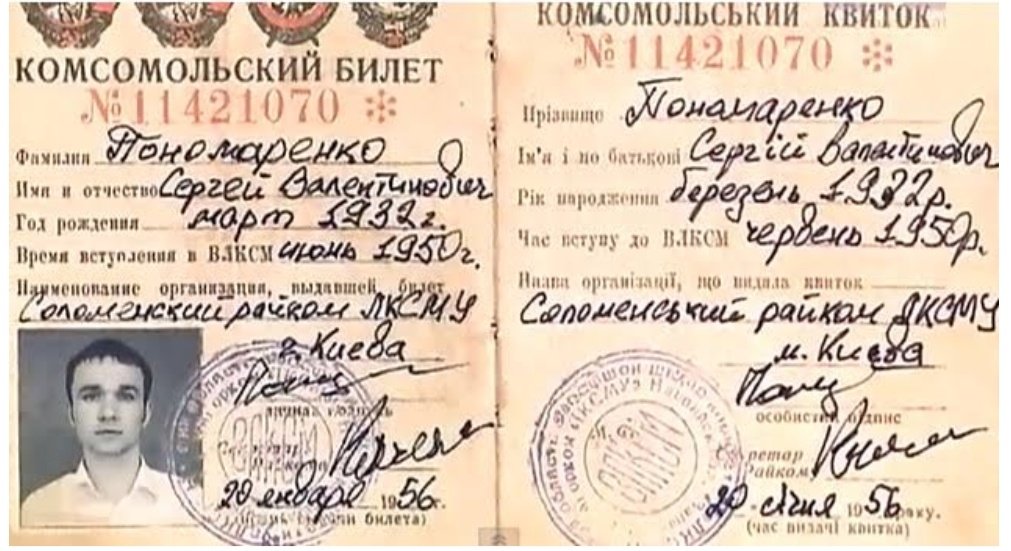 КОМСОМОЛЬСКИЙ БИЛЕТ
№11421070
Фамилия Пономаренко
Имя и отчество Сергей Валентинович
Год рождения март 1932г.
Время вступления в ВЛКСМ июнь 1950г.
Наименование организации, выдавшей билет
Соломенский райком ЛКСМУ
г. Киева
личная подпись
ВЛКСМ
20 января 1956г.
билета)
КОМСОМОЛЬСЬКИЙ КВИТОК
№11421070
Прізвище Пономаренко
Ім'я і по батькові Сергій Валентинович
Рік народження березень 1932р.
Час вступу до ВЛКСМ червень 1950р.
Назва організації, що видала квиток
Соломенський райком ЛКСМУ
м. Києва
особистий підпис
ВЛКСМ
Райкому
20 січня 1956 року.
(час видачі квитка)